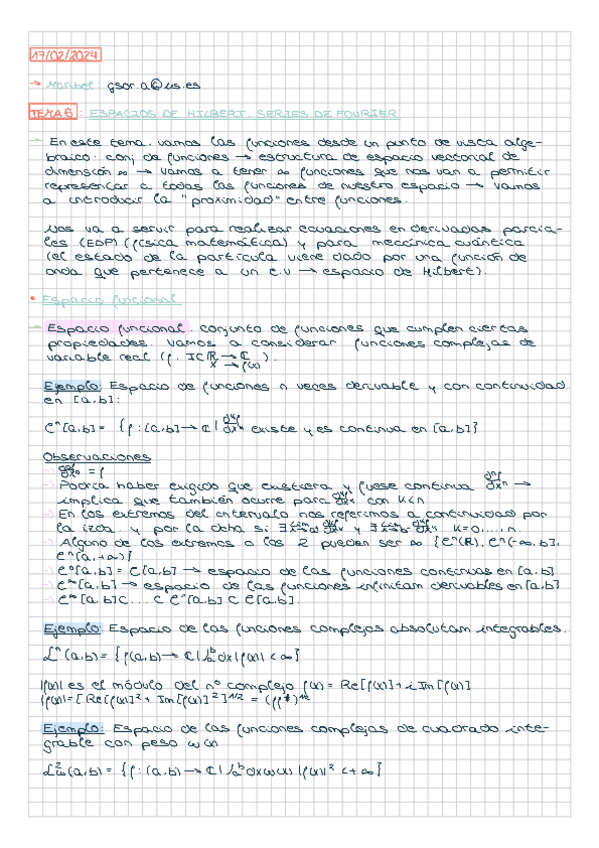 17/02/2024
→ Maribel gsor.a@us.es
TEMA 6: ESPACIOS DE HILBERT. SERIES DE FOURIER
→ En este tema, vamos las funciones desde un punto de vista alge-
braico: conj de funciones → estructura de espacio vectorial de
dimensión ∞ → vamos a tener ∞ funciones que nos van a permitir
representar a todas las funciones de nuestro espacio → vamos
a introducir la "proximidad" entre funciones.
Nos va a servir para realizar ecuaciones en derivadas parcia-
les (EDP) (física matemática) y para mecánica cuántica
(el estado de la partícula viene dado por una función de
onda que pertenece a un e.v → espacio de Hilbert).
• Espacio funcional
→ Espacio funcional: conjunto de funciones que cumplen ciertas
propiedades. Vamos a considerar funciones complejas de
variable real (f: I⊂ℝ → ℂ
x → f(x)).
Ejemplo: Espacio de funciones n veces derivable y con continuidad
en [a,b]:
Cⁿ[a,b] = {f: [a,b] → ℂ | dⁿf/dxⁿ existe y es continua en [a,b]}
Observaciones
→ d⁰f/dx⁰ = f
→ Podría haber exigido que existiera y fuese continua dⁿf/dxⁿ →
implica que también ocurre para dᵏf/dxᵏ con k<n
→ En los extremos del intervalo nos referimos a continuidad por
la izda y por la dcha si ∃ lim x→a⁺ dᵏf/dxᵏ y ∃ lim x→b⁻ dᵏf/dxᵏ k=0,...,n.
→ Alguno de los extremos o los 2 pueden ser ∞ {Cⁿ(ℝ), Cⁿ(-∞,b],
Cⁿ[a,+∞)}
→ C⁰[a,b] = C[a,b] → espacio de las funciones continuas en [a,b]
→ C^∞[a,b] → espacio de las funciones infinitam derivables en [a,b]
→ C^∞[a,b] ⊂ ... ⊂ C¹[a,b] ⊂ C[a,b].
Ejemplo: Espacio de las funciones complejas absolutam integrables.
L¹(a,b) = {f(a,b) → ℂ | ∫ₐᵇ dx|f(x)| < ∞}
|f(x)| es el módulo del nº complejo f(x) = Re[f(x)] + i Im[f(x)]
|f(x)| = [Re[f(x)]² + Im[f(x)]²]^1/2 = (ff*)^1/2
Ejemplo: Espacio de las funciones complejas de cuadrado inte-
grable con peso ω(x)
L²ω(a,b) = {f: (a,b) → ℂ | ∫ₐᵇ dxω(x) |f(x)|² < +∞}